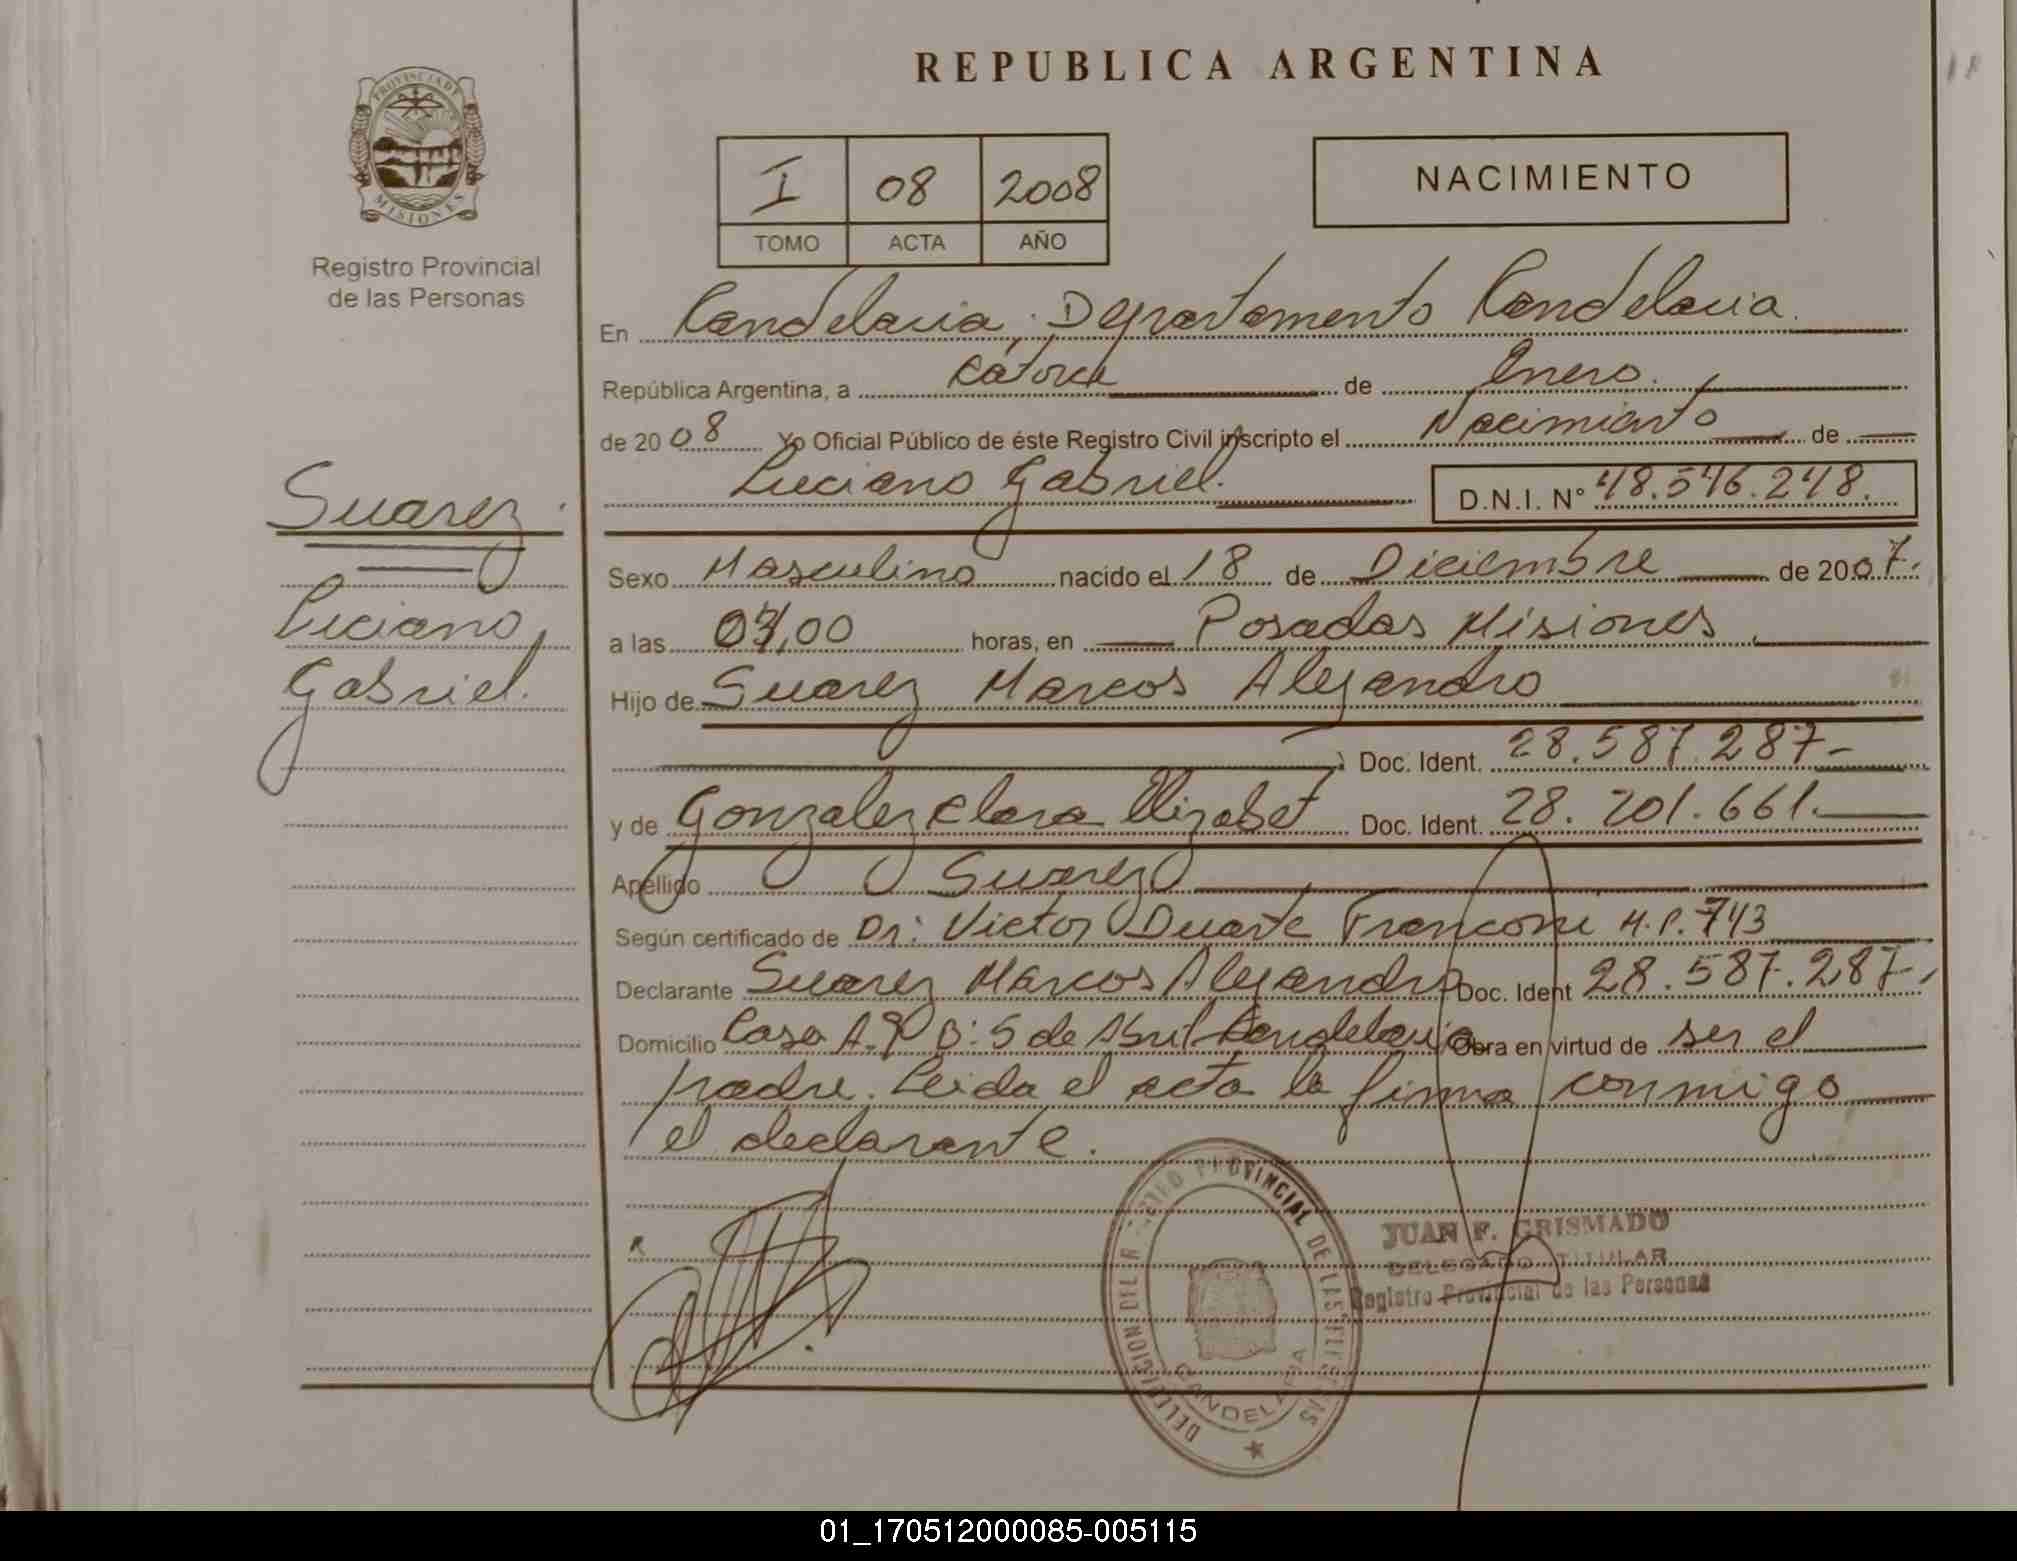 REPUBLICA ARGENTINA
PROVINCIA DE MISIONES
Registro Provincial
de las Personas
I 08 2008
TOMO ACTA AÑO
NACIMIENTO
En Candelaria, Departamento Candelaria.
República Argentina, a Catorce de Enero.
de 2008 Yo Oficial Público de éste Registro Civil inscripto el Nacimiento de
Luciano Gabriel. D.N.I. Nº 48.546.248.
Suarez
Luciano
Gabriel.
Sexo Masculino nacido el 18 de Diciembre de 2007.
a las ,00 horas, en Posadas Misiones
Hijo de Suarez Marcos Alejandro
Doc. Ident. 28.587.287-
y de Gonzalez Clara Elizabet Doc. Ident. 28.201.661.
Apellido Suarez
Según certificado de Dr: Victor Duarte Franconi M.P. 743
Declarante Suarez Marcos Alejandro Doc. Ident 28.587.287-
Domicilio Casa B: 5 de Abril Candelaria Obra en virtud de ser el
padre. Leida el acta la firma conmigo
el declarante.
DELEGACION DEL REGISTRO PROVINCIAL DE LAS PERSONAS
CANDELARIA
JUAN F. GRISMADO
DELEGADO TITULAR
Registro Provincial de las Personas
01_170512000085-005115